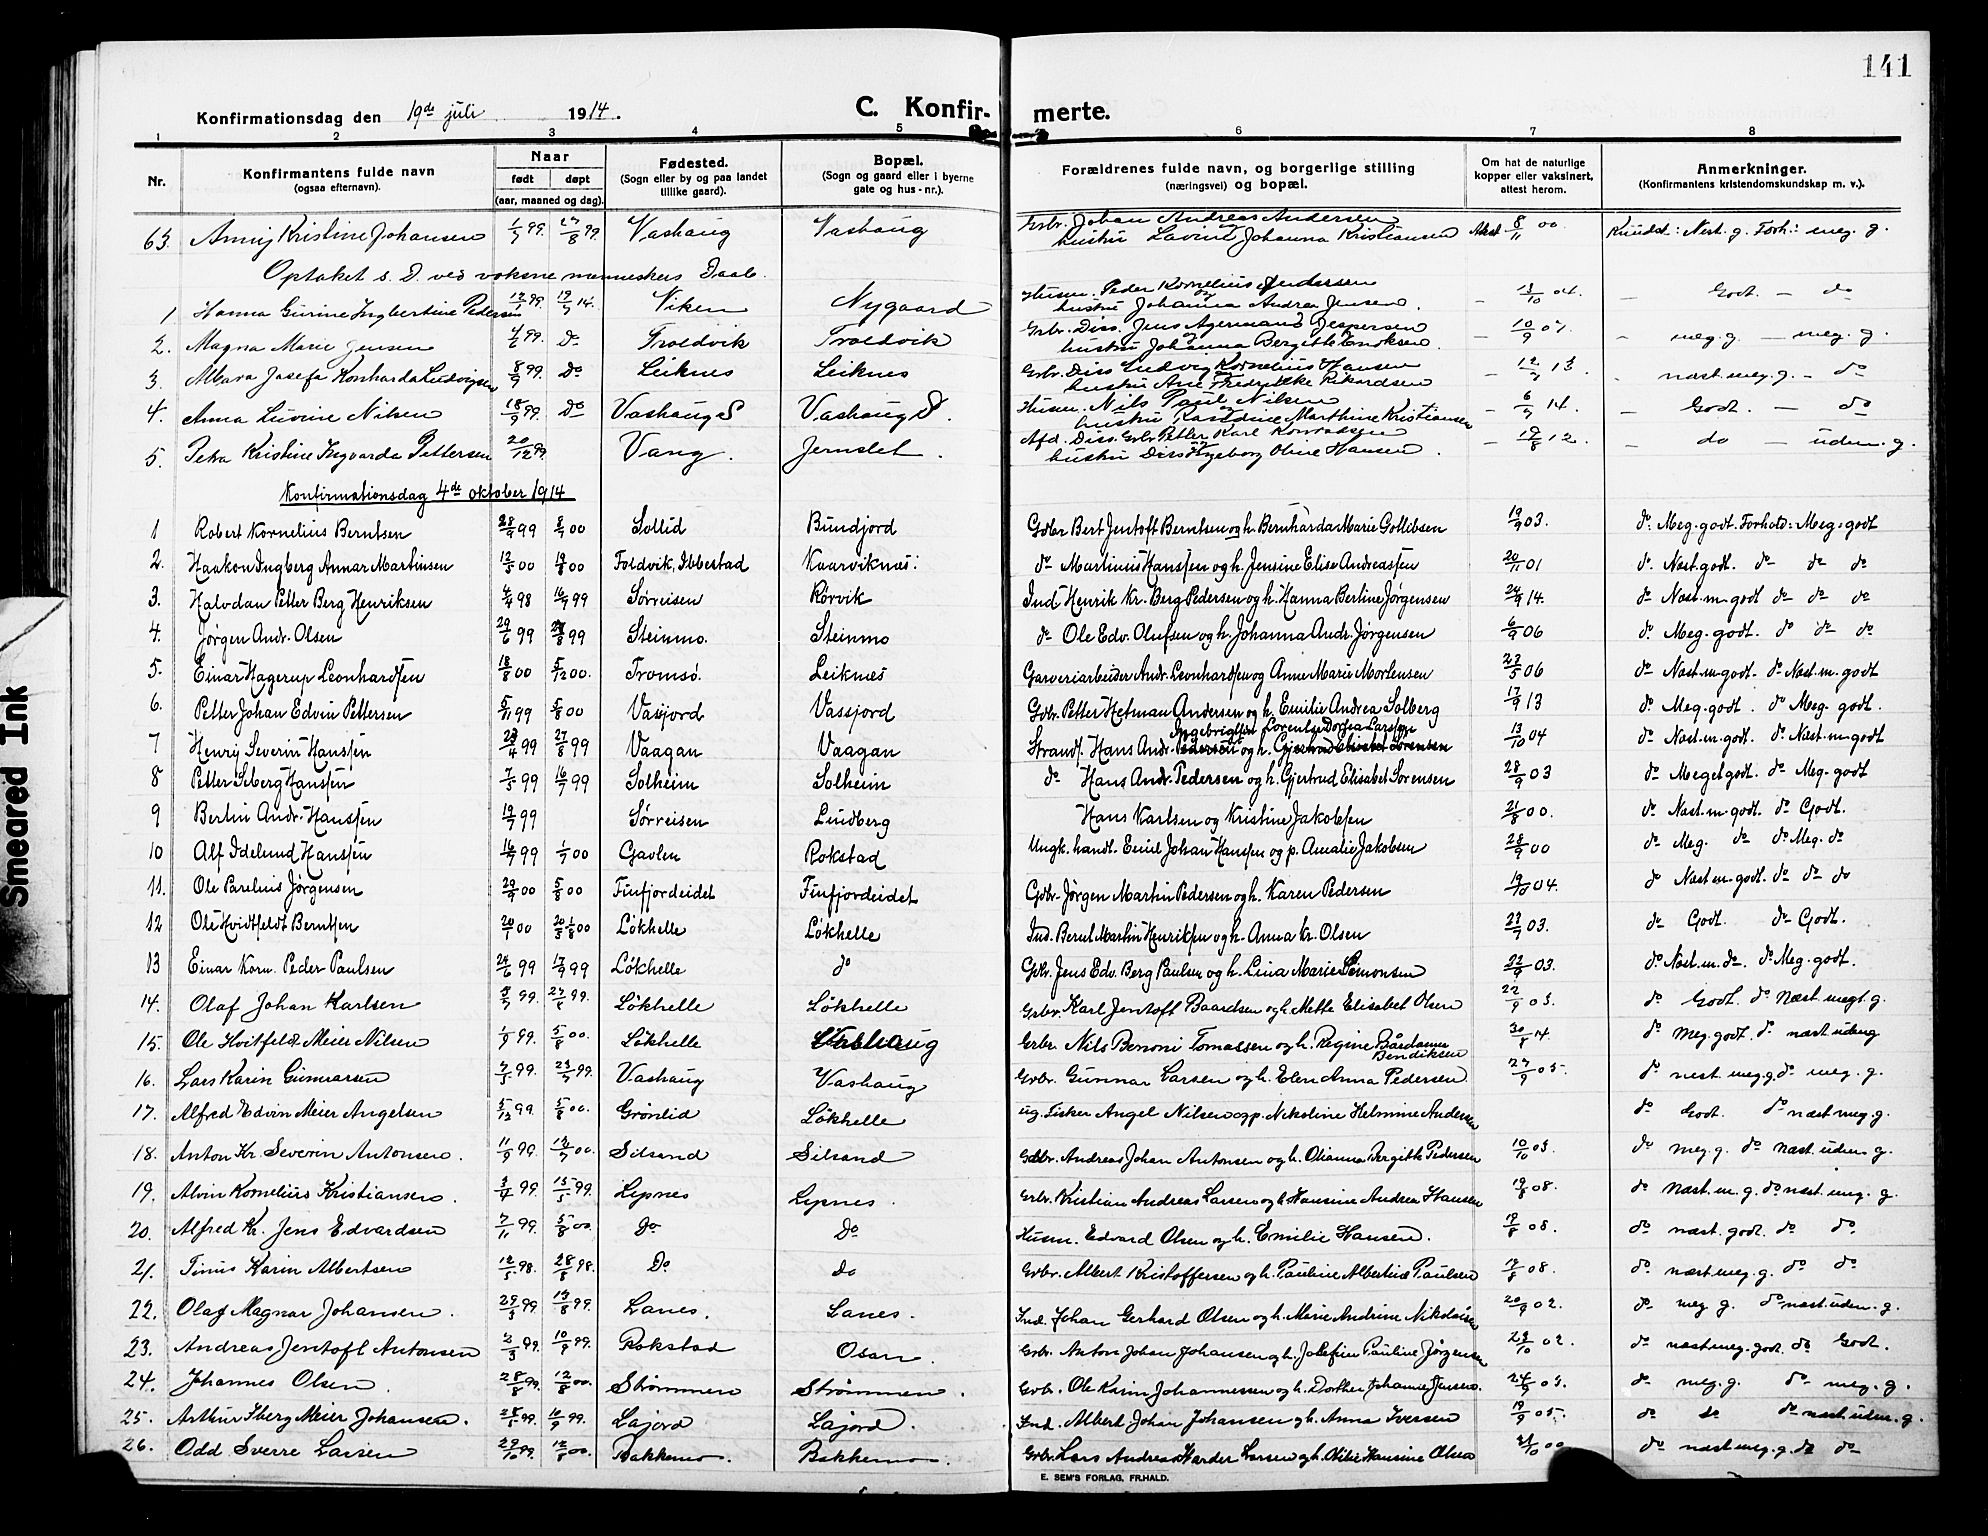 141
Konfirmationsdag den 19de juli 1914. C. Konfir- merte.
1 2 3 4 5 6 7 8
Nr. Konfirmantens fulde navn (ogsaa efternavn). Naar født døpt (aar, maaned og dag). Fødested. (Sogn eller by og paa landet tillike gaard). Bopæl. (Sogn og gaard eller i byerne gate og hus-nr.). Forældrenes fulde navn, og borgerlige stilling (næringsvei) og bopæl. Om hat de naturlige kopper eller vaksinert, attest herom. Anmerkninger. (Konfirmantens kristendomskundskap m. v.).
63. Anny Kristine Johansen 1/7 99. 27/8 99. Vashaug Vashaug Grbr. Johan Andreas Andersen og hustru Lavine Johanna Kristiansen Attest 8/11 00 Kundst: Næst. g. Forh.: meg. g.
Optaket s. D. ved voksne menneskers Daab.
1 Hanna Gurine Ingbertine Pedersen 12/1 99. 19/7 14. Viken Nygaard Husm. Peder Kornelius Andersen og hustru Johanna Andrea Jensen. - 13/10 04. - Godt. - do
2. Magna Marie Jensen 4/6 99. Do Troldvik Troldvik Grbr. Diss. Jens Agermand Jespersen og hustru Johanna Bergitte Enoksen. - 10/9 07. - meg. g. - meg. g.
3. Alvara Josefa Konharda Ludvigsen 8/9 99. Do Leiknes Leiknes Grbr. Diss Ludvig Kornelius Hansen og hustru Ane Fredrikke Rikardsen - 12/7 13. - næst. meg. g. - do
4. Anna Luvine Nilsen 18/9 99. Do Vashaug S Vashaug D. Husm. Nils Paul Nilsen og hustru Kastdine Marthine Kristiansen - 6/7 14. - Godt. - do
5. Petra Kristine Ingvarda Pettersen 20/12 99. Vang. Jernslet. Afd. Diss. Grbr. Petter Karl Konradsen og hustru Diss Ingeborg Oline Hansen. - 19/8 12. - do - udm. g.
Konfirmationsdag 4de oktober 1914
1 Robert Kornelius Berntsen 28/9 99 8/7 00 Sollid Bundjord Gdbr Bert Jentoft Berntsen og h. Bernharda Marie Gotlibsen 19/9 03. do: Meg. godt. Forhold: Meg. godt
2. Haakon Ingberg Annar Martinsen 12/5 00 19/8 00 Foldvik, Ibbestad Kaarviknes: do Martinius Hanssen og h. Jensine Elise Andreassen 20/11 01 do. Næst. godt. do do do
3. Halvdan Petter Berg Henriksen 4/4 98 16/7 99 Sørreisen Rørvik Ind Henrik Kr. Berg Pedersen og h. Hanna Bertine Jørgensen 24/9 14. do Næst. m. godt do do do
4. Jørgen Andr. Olsen 29/6 99 27/8 99 Steinmo. Steinmo do Ole Edv. Olufsen og h. Johanna Andr. Jørgensen 6/9 06 do Meg. godt. do do do
5. Einar Hagerup Leonhardsen 18/8 00 5/12 00. Tromsø. Leiknes Garveriarbeider Andr. Leonhardsen og Anne Marie Mortensen 23/5 06 do Næst. m. godt. do Næst. m. godt
6. Petter Johan Edvin Pettersen 5/11 99 5/8 00 Vasjord Vassjord Gdbr. Petter Hetman Andersen og h. Emilie Andrea Solberg 17/9 13 do Meg. godt. do Meg. godt.
Ingebrigtsen Lorentse Dorsea Larssen
7 Henry Severin Hanssen 23/4 99 27/8 99 Vaagan Vaagan Strands. Hans Andr. Pedersen og h. Gjertrud Elisabet Sorensen 13/10 04 do Næst. m. godt. do Næst. m. godt
8 Petter Seberg Hanssen 7/5 99 16/7 99 Solheim Solheim do Hans Andr. Pedersen og h. Gjertrud Elisabet Sorensen 28/9 03 do Meget godt. do Meg. godt
9 Bertin Andr. Hanssen 19/7 99 Sørreisen Lindberg Hans Karlsen og Kristine Jakobsen 21/8 00. do Næst. m. godt do Godt.
10 Alf Idelund Hanssen 16/9 99 1/7 00 Gavlen Rokstad Ungk. handl. Emil Johan Hanssen og p. Amalie Jakobsen 28/9 00 do Meg. do do Meg. do
11. Ole Parelius Jørgensen 5/8 00 Finfjordeidet Finfjordeidet Gdbr. Jørgen Martin Pedersen og h. Karen Pedersen 19/10 04. do Næst m. godt. do do do
12 Ole Hvidtfeldt Berntsen 20/1 00 Løkhelle Løkhelle Ind. Bernt Martin Henriksen og h. Anna Kr. Olsen 23/7 03. do Godt. do Godt.
13 Einar Korn. Peder Paulsen 24/6 99 17/9 99 Løkhelle do Gdbr. Jens Edv. Berg Paulsen og h. Lina Marie Simonsen 22/9 03. do Næst. m. do. do Meg. godt.
14. Olaf Johan Karlsen 5/7 99. Løkhelle Løkhelle Grbr. Karl Jentoft Baardsen og h. Mette Elisabet Olsen 22/9 03. do Godt. do Næst. megt. g.
15. Ole Hvitfeldt Meier Nilsen 1/9 99. 5/8 00. Løkhelle Vashaug Grbr. Nils Benoni Tomassen og h. Regine Bårdamus Bendiksen 30/8 14. do Meg. godt. do næst. udm g
16. Lars Karin Gunnarsen 7/5 99. 23/7 99. Vashaug Vashaug Grbr. Gunnar Larsen og h. Elen Anna Pedersen. 27/9 05. do næst meg. g. do meg. g.
17. Alfred Edvin Meier Angelsen 5/12 99. 5/8 00. Grønlid Løkhelle ug. Fisker Angel Nilsen og p. Nikoline Helmine Andersen do Godt. do næst meg. g.
18. Anton Kr. Severin Antonsen. 11/9 99. 12/7 00. Silsand Silsand Gdbr. Andreas Johan Antonsen og h. Olianna Bergitte Pedersen 10/10 03. do meg. g. do næst. udm. g.
19. Alvin Kornelius Kristiansen. 3/4 99. 15/5 99. Lysnes Lysnes. Grbr. Kristian Andreas Larsen og h. Hansine Andrea Hansen 19/8 08. do Næst. m. g. do næst. mg. g.
20. Alfred Kr. Jens Edvardsen 7/11 99. 5/8 00. Do Do Husm. Edvard Olsen og h. Emilie Hansen. 19/8 08. do næst. godt. do do
21. Tinus Karin Albertsen 12/5 98. 28/8 98. Do do Grbr. Albert Kristoffersen og h. Pauline Albertine Paulsen 19/8 08. do næst. meg. g. do do
22. Olaf Magnar Johansen. 29/3 99. 13/8 99. Lanes. Lanes. Ind. Johan Gerhard Olsen og h. Marie Andrine Nikolaisen 20/9 02. do meg g. do næst. udm. g.
23. Andreas Jentoft Antonsen 2/3 99. 10/9 99. Rokstad Osan. Grbr. Anton Johan Johansen og h. Josefine Pauline Jørgensen 23/10 02. do næst meg. godt. do Godt.
24. Johannes Olsen. 28/8 99. 12/8 00. Strømmen Strømmen. Grbr. Ole Karin Johannessen og h. Dorthea Johanne Jensen. 24/9 03. do meg. g. do meg. g.
25. Arthur Sberg Meier Johansen. 10/9 99. Lajord Lajord. Ind. Albert Johan Johansen og h. Anna Iversen 19/9 05. do do do næst udm. g.
26. Odd Sverre Larsen 29/10 99. 12/8 00. Bakkemo. Bakkemo. Grbr. Lars Andreas Harder Larsen og h. Otilie Hansine Olsen 21/10 00 do næst meg. g. do do
E. SEM'S FORLAG, FR.HALD.
Smeared Ink